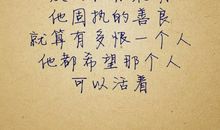 他固执的善良
就算有多恨一个人
他都希望那个人
可以活着